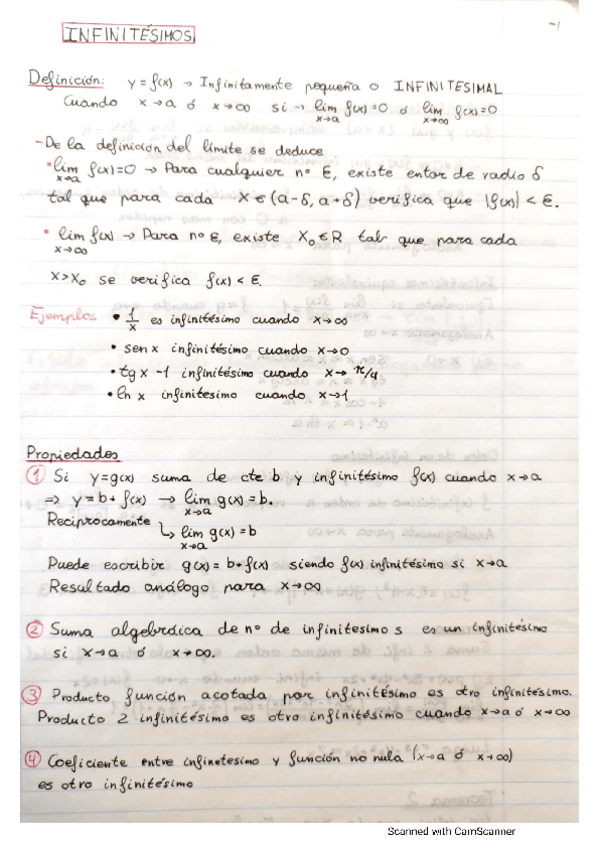 -1
INFINITÉSIMOS
Definición: y = f(x) → Infinitamente pequeña o INFINITESIMAL
Cuando x→a ó x→∞ si → lim f(x)=0 ó lim f(x)=0
x→a x→∞
-De la definición del límite se deduce
• lim f(x)=0 → Para cualquier nº ε, existe entor de radio δ
x→a
tal que para cada x ∈ (a-δ, a+δ) verifica que |f(x)| < ε.
• lim f(x) → Para nº ε, existe X₀∈R tal que para cada
x→∞
x>x₀ se verifica f(x) < ε.
Ejemplos • 1/x es infinitésimo cuando x→∞
• sen x infinitésimo cuando x→0
• tg x -1 infinitésimo cuando x→ π/4
• ln x infinitesimo cuando x→1
Propiedades
① Si y=g(x) suma de cte b y infinitésimo f(x) cuando x→a
⇒ y = b+ f(x) → lim g(x) = b.
x→a
Reciprocamente ↳ lim g(x) = b
x→a
Puede escribir g(x) = b+f(x) siendo f(x) infinitésimo si x→a
Resultado análogo para x→∞
② Suma algebráica de nº de infinitesimo s es un infinitésimo
si x→a ó x→∞.
③ Producto función acotada por infinitésimo es otro infinitésimo.
Producto 2 infinitésimo es otro infinitésimo cuando x→a ó x→∞
④ Coeficiente entre infinetesimo y función no nula (x→a ó x→∞)
es otro infinitésimo
Scanned with CamScanner